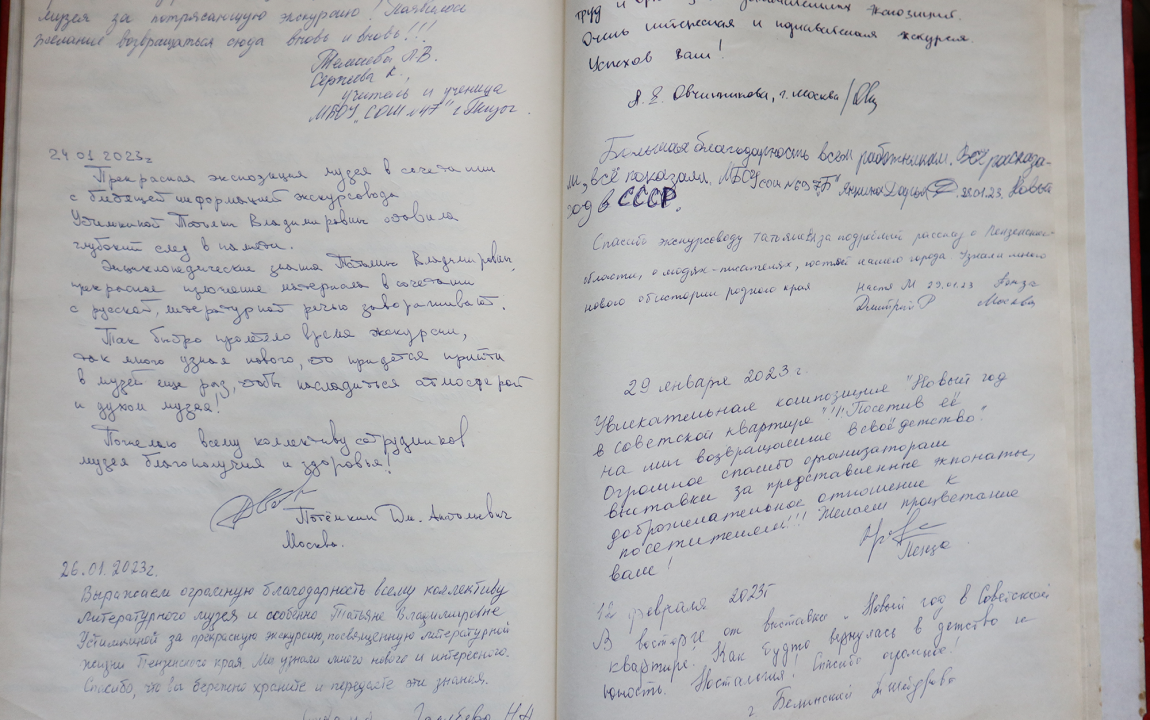 музея за потрясающую экскурсию! Появилось
желание возвращаться сюда вновь и вновь!!!
Сергеева К.,
учитель и ученица
МБОУ "СОШ №47" г. Пенза
24.01.2023г
Прекрасная экспозиция музея в сочетании
с блестящей информацией экскурсовода
Устимкиной Татьяны Владимировны оставила
глубокий след в памяти.
Энциклопедические знания Татьяны Владимировны,
прекрасное изложение материала в сочетании
с русской, литературной речью завораживает.
Так быстро пролетело время экскурсии,
так много узнал нового, что придется прийти
в музей еще раз, чтобы насладиться атмосферой
и духом музея!
Пожелаю всему коллективу сотрудников
музея благополучия и здоровья!
Потёмкин Дм. Анатольевич
Москва.
26.01.2023г.
Выражаем огромную благодарность всему коллективу
Литературного музея и особенно Татьяне Владимировне
Устимкиной за прекрасную экскурсию, посвященную литературной
жизни Пензенского края. Мы узнали много нового и интересного.
Спасибо, что вы бережно храните и передаете эти знания.
Голубева Н.А
труд и экспозицией.
Очень интересная и познавательная экскурсия.
Успехов Вам!
А. Е. Овчинникова, г. Москва
Большая благодарность всем работникам. Всё расска-
ли, всё показали. МБОУ СОШ 7"Б" Дарья 28.01.23. Новый
год в СССР.
Спасибо экскурсоводу Татьяне за подробный рассказ о Пензенской
области, о людях-писателях, гостях нашего города. Узнали много
нового об истории родного края Настя М 29.01.23 Пенза
Дмитрий Р Москва
29 января 2023 г.
Увлекательная композиция "Новый год
в советской квартире"!!! Посетив её
на миг возвращение в своё детство.
Огромное спасибо организаторам
выставки за представленные экпонаты,
доброжелательное отношение к
посетителям!!! Желаем процветание
вам!
Пенза
12 февраля 2023г
В восторге от выставки "Новый год в Советской
квартире". Как будто вернулась в детство и
юность. Ностальгия! Спасибо огромное!
г. Белинский